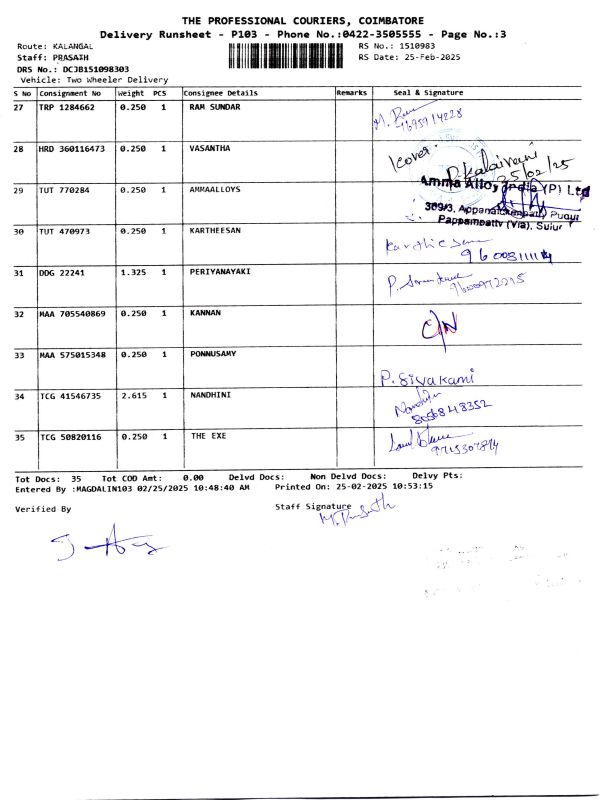 THE PROFESSIONAL COURIERS, COIMBATORE
Delivery Runsheet - P103 - Phone No.:0422-3505555 - Page No.:3
Route: KALANGAL RS No.: 1510983
Staff: PRASATH RS Date: 25-Feb-2025
DRS No.: DCJB151098303
Vehicle: Two Wheeler Delivery
S No Consignment No Weight PCS Consignee Details Remarks Seal & Signature
27 TRP 1284662 0.250 1 RAM SUNDAR
28 HRD 360116473 0.250 1 VASANTHA
1cover. P. Kalaivani
25/02/25
29 TUT 770284 0.250 1 AMMAALLOYS
Amma Alloy India (P) Ltd
Pappampatty (Via), Sulur
30 TUT 470973 0.250 1 KARTHEESAN
31 DDG 22241 1.325 1 PERIYANAYAKI
32 MAA 705540869 0.250 1 KANNAN
C/N
33 MAA 575015348 0.250 1 PONNUSAMY
P. Sivakami
34 TCG 41546735 2.615 1 NANDHINI
Nandhini
8056848352
35 TCG 50820116 0.250 1 THE EXE
Tot Docs: 35 Tot COD Amt: 0.00 Delvd Docs: Non Delvd Docs: Delvy Pts:
Entered By :MAGDALIN103 02/25/2025 10:48:40 AM Printed On: 25-02-2025 10:53:15
Verified By Staff Signature